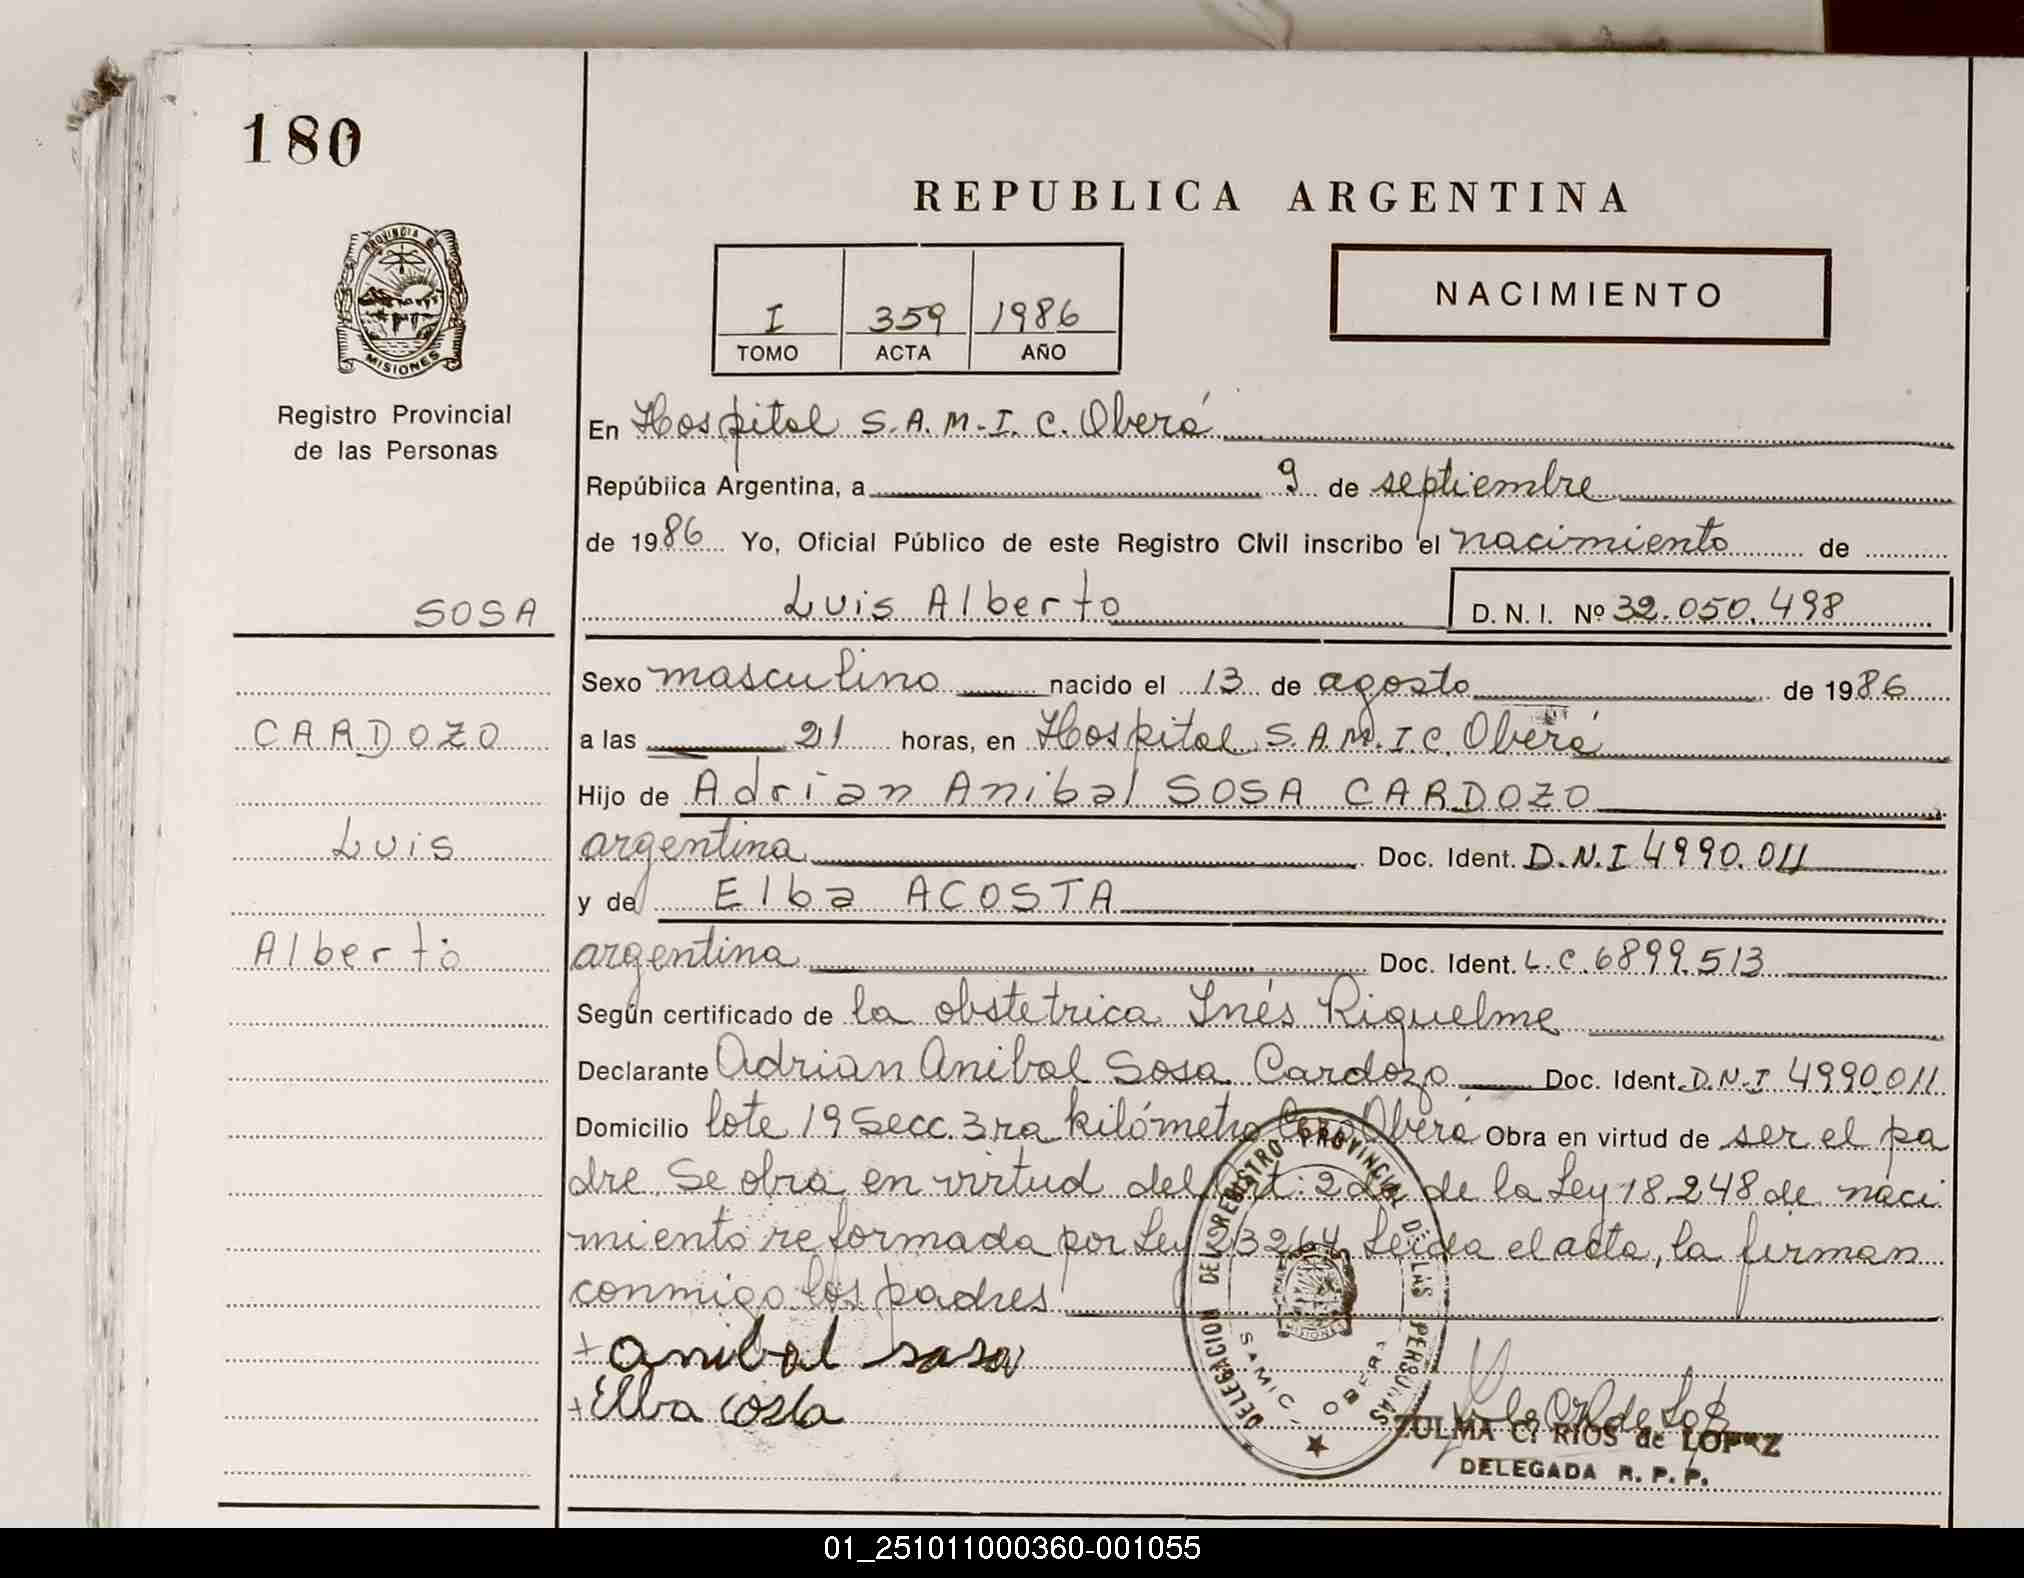 180
REPUBLICA ARGENTINA
PROVINCIA DE
MISIONES
I 359 1986
TOMO ACTA AÑO
NACIMIENTO
Registro Provincial
de las Personas
En Hospital S.A.M.I.C. Oberá
República Argentina, a 9 de septiembre
de 1986 Yo, Oficial Público de este Registro Civil inscribo el nacimiento de
SOSA
Luis Alberto D. N. I. Nº 32.050.498
Sexo masculino nacido el 13 de agosto de 1986
CARDOZO
a las 21 horas, en Hospital S.A.M.I.C. Oberá
Hijo de Adrian Anibal SOSA CARDOZO
Luis
argentina Doc. Ident. D.N.I 4990.011
y de Elba ACOSTA
Alberto
argentina Doc. Ident. L.C. 6899.513
Según certificado de la obstetrica Inés Riquelme
Declarante Adrian Anibal Sosa Cardozo Doc. Ident. D.N.I 4990011
Domicilio lote 19 Secc. 3ra kilómetro Oberá Obra en virtud de ser el pa
dre. Se obra en virtud del Art: 2da de la Ley 18.248 de naci
miento reformada por Ley 23264 Leida el acta, la firman
conmigo los padres
+ anibal sosa
+ Elba costa
DELEGACION DEL REGISTRO PROVINCIAL DE LAS PERSONAS
SAMIC - OBERA
MISIONES
ZULMA C. RIOS de LOPEZ
DELEGADA R. P. P.
01_251011000360-001055